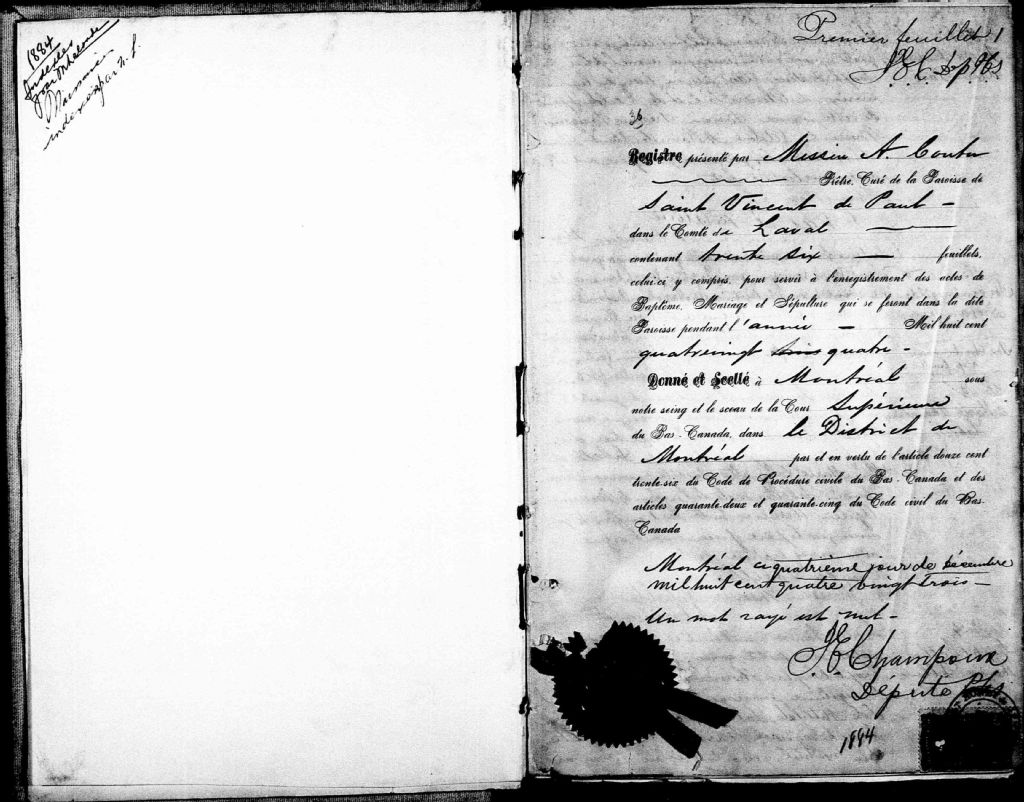 1884
Index des
index on par n. f.
Premier feuillet 1
J.E.C. Dep Phs
36
Registre présenté par Messire A. Coutu
Prêtre, Curé de la Paroisse de
Saint Vincent de Paul –
dans le Comté de Laval
contenant trente six — feuillets,
celui-ci y compris, pour servir à l'enregistrement des actes de
Baptême, Mariage et Sépulture qui se feront dans la dite
Paroisse pendant l'année – Mil huit cent
quatrevingt trois quatre –
Donné et Scellé à Montréal sous
notre seing et le sceau de la Cour Supérieure
du Bas-Canada, dans le District de
Montréal par et en vertu de l'article douze cent
trente-six du Code de Procédure civile du Bas-Canada et des
articles quarante-deux et quarante-cinq du Code civil du Bas-
Canada
Montréal ce quatrième jour de Décembre
mil huit cent quatre vingt trois –
Un mot rayé est nul –
J.E. Champoux
Député Phs
1884